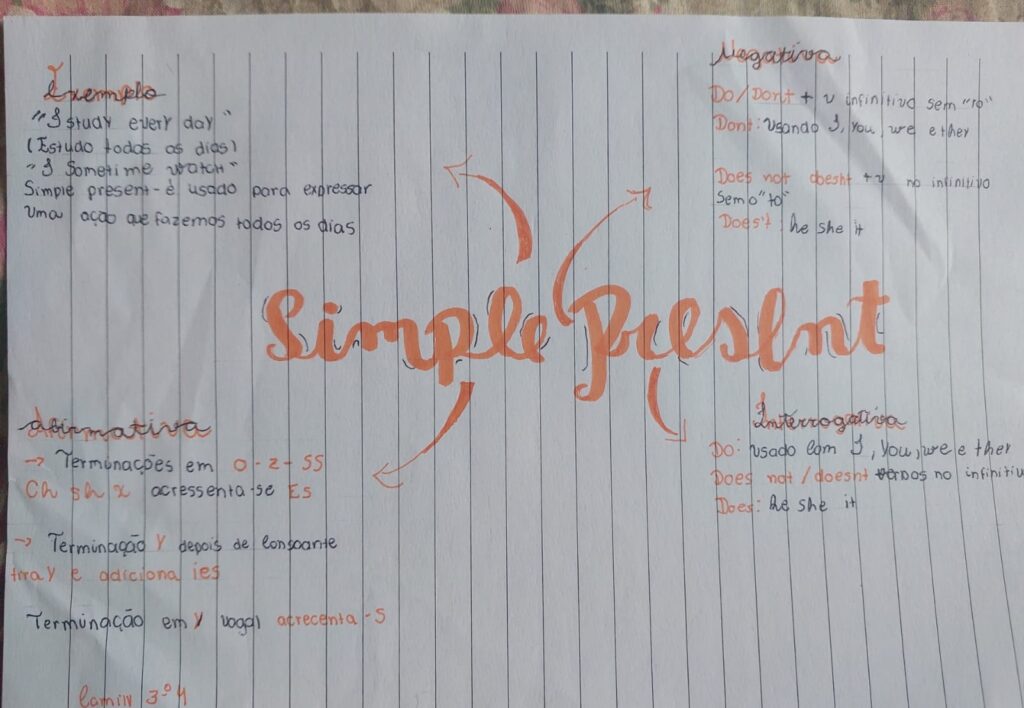 Exemplo
"I study every day"
(Estudo todos os dias)
"I Sometime watch"
Simple present - é usado para expressar
Uma ação que fazemos todos os dias
Negativa
Do/Dont + v infinitivo sem "to"
Dont: usando I, You, we e ther
Does not doesht + v no infinitivo
Sem o "to"
Does't: he she it
Simple Present
afirmativa
→ Terminações em o - z - ss
Ch sh x acressenta-se Es
→ Terminação Y depois de consoante
tira Y e adiciona ies
Terminação em y vogal acrecenta -S
Interrogativa
Do: usado com I, You, we e ther
Does not/doesnt verbos no infinitiv
Does: he she it
3º4